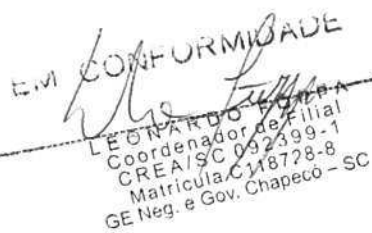 EM CONFORMIDADE
LEONARDO
Coordenador de Filial
CREA/SC 092399-1
Matrícula C118728-8
GE Neg. e Gov. Chapecó - SC